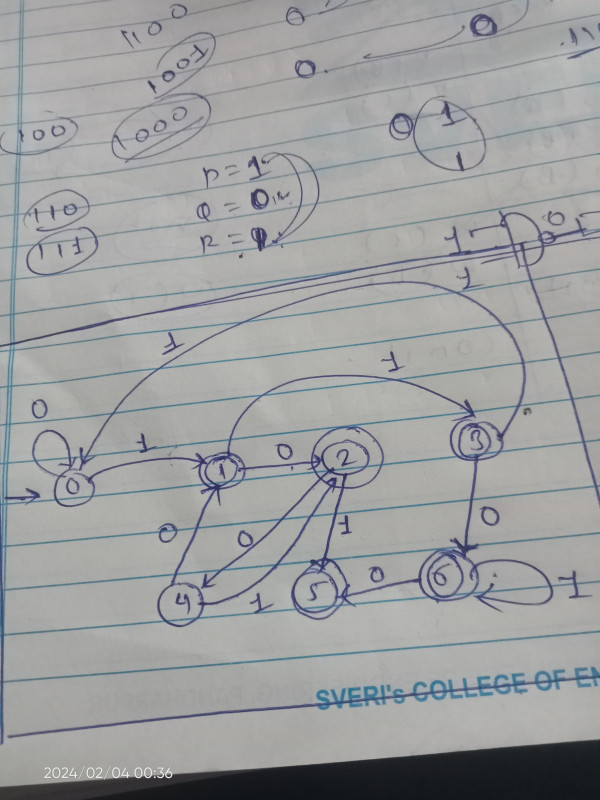 1100
1001
100
1000
0
0
0.
.11
0
1
1
P = 1
Q = 0
R = 1
110
111
1
0
1
1
1
0
1
0
1
0
2
3
0
0
1
0
4
1
5
0
6
1
SVERI's COLLEGE OF EN
2024/02/04 00:36